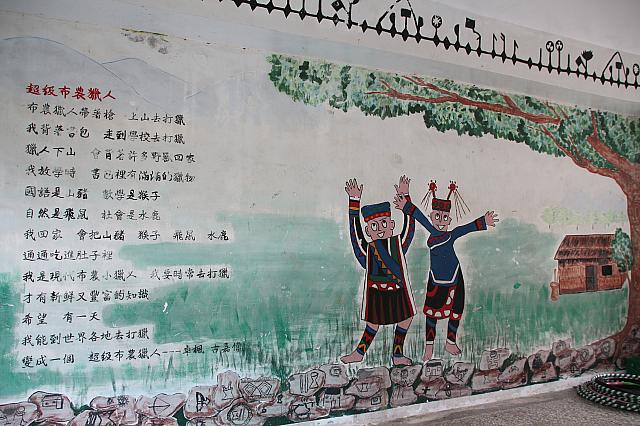 超級布農獵人
布農獵人帶著槍　上山去打獵
我背著書包　走到學校去打獵
獵人下山　會背著許多野獸回家
我放學時　書包裡有滿滿的獵物
國語是山豬　數學是猴子
自然是飛鼠　社會是水鹿
我回家　會把山豬　猴子　飛鼠　水鹿
通通吃進肚子裡
我是現代布農小獵人　我要時常去打獵
才有新鮮又豐富的知識
希望　有一天
我能到世界各地去打獵
變成一個　超級布農獵人---卓楓　古嘉偉